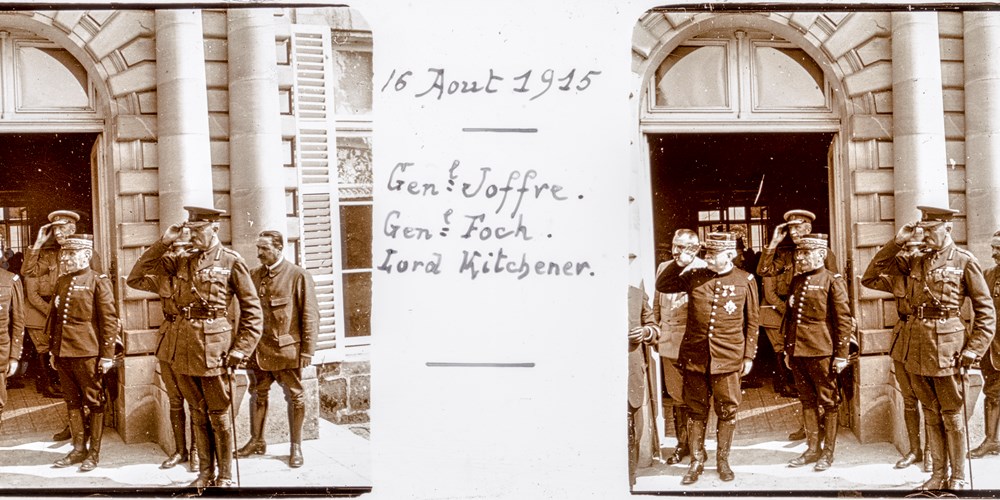 16 Aout 1915
Genˡ: Joffre.
Genˡ: Foch.
Lord Kitchener.